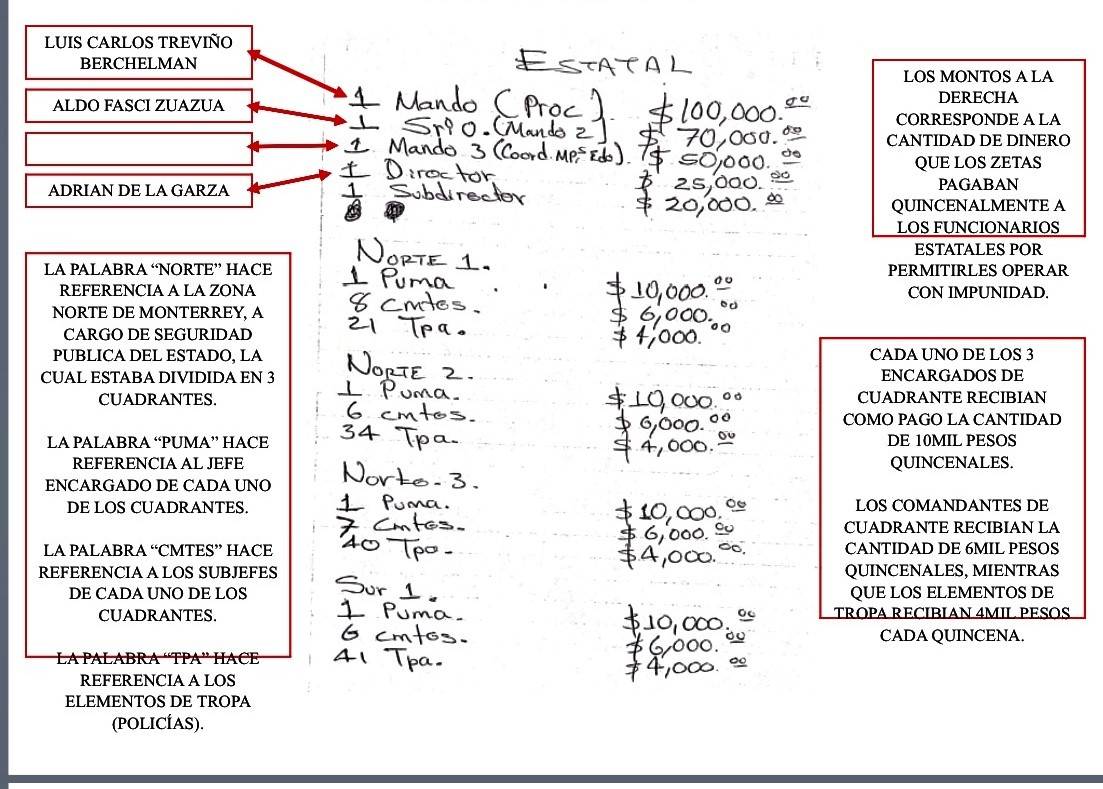 LUIS CARLOS TREVIÑO
BERCHELMAN
ALDO FASCI ZUAZUA
ADRIAN DE LA GARZA
ESTATAL
1 Mando (Proc). $100,000.00
1 Srio. (Mando 2). $ 70,000.00
1 Mando 3 (Coord. MPs Edo). $ 50,000.00
1 Director $ 25,000.00
1 Subdirector $ 20,000.00
NORTE 1.
1 Puma $10,000.00
8 Cmtes. $ 6,000.00
21 Tpa. $ 4,000.00
NORTE 2.
1 Puma. $10,000.00
6 cmtes. $ 6,000.00
34 Tpa. $ 4,000.00
Norte-3.
1 Puma. $10,000.00
7 Cmtes. $ 6,000.00
40 Tpa. $4,000.00.
Sur 1.
1 Puma. $10,000.00
6 cmtes. $6,000.00
41 Tpa. $4,000.00
LOS MONTOS A LA
DERECHA
CORRESPONDE A LA
CANTIDAD DE DINERO
QUE LOS ZETAS
PAGABAN
QUINCENALMENTE A
LOS FUNCIONARIOS
ESTATALES POR
PERMITIRLES OPERAR
CON IMPUNIDAD.
LA PALABRA “NORTE” HACE
REFERENCIA A LA ZONA
NORTE DE MONTERREY, A
CARGO DE SEGURIDAD
PUBLICA DEL ESTADO, LA
CUAL ESTABA DIVIDIDA EN 3
CUADRANTES.
LA PALABRA “PUMA” HACE
REFERENCIA AL JEFE
ENCARGADO DE CADA UNO
DE LOS CUADRANTES.
LA PALABRA “CMTES” HACE
REFERENCIA A LOS SUBJEFES
DE CADA UNO DE LOS
CUADRANTES.
LA PALABRA “TPA” HACE
REFERENCIA A LOS
ELEMENTOS DE TROPA
(POLICÍAS).
CADA UNO DE LOS 3
ENCARGADOS DE
CUADRANTE RECIBIAN
COMO PAGO LA CANTIDAD
DE 10MIL PESOS
QUINCENALES.
LOS COMANDANTES DE
CUADRANTE RECIBIAN LA
CANTIDAD DE 6MIL PESOS
QUINCENALES, MIENTRAS
QUE LOS ELEMENTOS DE
TROPA RECIBIAN 4MIL PESOS
CADA QUINCENA.